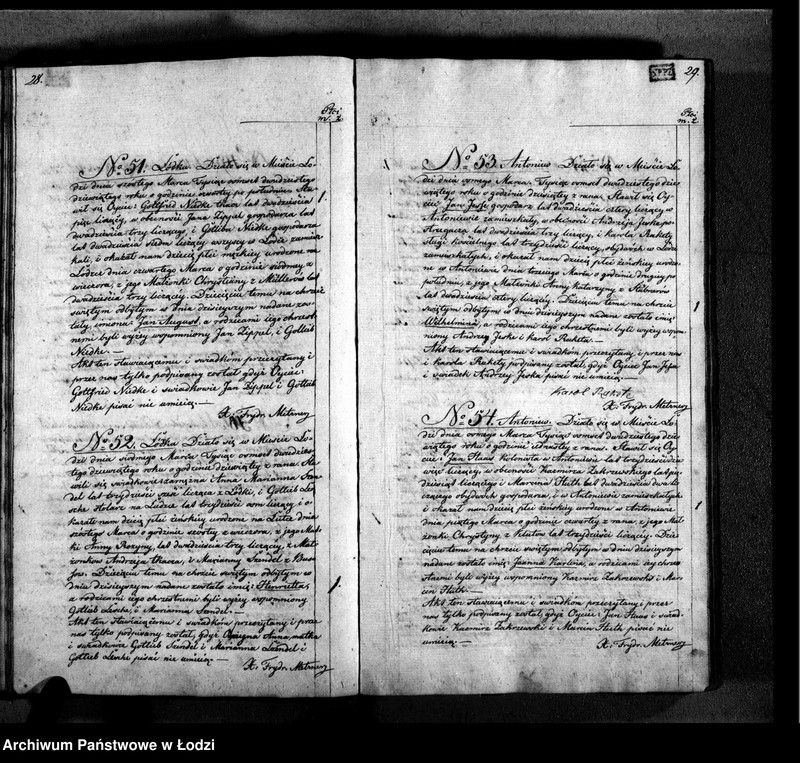 28.
Płci
m. ż.
No 51. Lodka Działo się w Mieście Ło-
dzi dnia szostego Marca Tysiąc osmset dwudziestego
dziewiątego roku o godzinie czwartey po południu. Sta-
wił się Oyciec Gottfryd Nidke tkacz lat dwadzieścia
pięć liczący, w obecności Jana Zippel gospodarza lat
dwadzieścia trzy liczącey, i Gotliba Nidke gospodarza
lat dwadzieścia siedm liczący wszyscy w Łodce zamiesz-
kali, i okazał nam dziecię płci męzkiey urodzone na
Lodzce dnia czwartego Marca o godzinie siodmey z
wieczora, z jego Małżonki Chrystyany z Müllerów lat
dwadzieścia trzy liczącey. Dziecięciu temu na chrzcie
świętym odbytym w dniu dzisieyszym nadane zos-
tały imiona Jan August, a rodzicami iego chrzest-
nemi byli wyżey wspomniony Jan Zippel, i Gotlieb
Nidke. —
Akt ten stawiaiącemu i świadkom przeczytany i
przez nas tylko podpisany został, gdyż Oyciec
Gottfryd Nidke i swiadkowie Jan Zippel i Gotlieb
Nidke pisać nie umieią. —
X. Frydr. Metzner
1.
No 52. Lodka Działo się w Mieście Ło-
dzi dnia siodmego Marca Tysiąc osmset dwudzies-
tego dziewiątego roku o godzinie dziewiątey z rana. Sta-
wili się świadkowie Anna Marianna Sen-
del lat trzydzieści sześć licząca z Lodki, i Gotlieb Le-
sche na Lodce lat trzydzieści osm liczący i o-
kazali nam dziecię płci żeńskiey urodzone na dnia
szostego Marca o godzinie szostey z wieczora, z jego Mat-
ki Anny Rozyny, lat dwadzieścia trzy liczącey, z Mał-
żonkow Andrzeja tkacza, i Marianny Sendel z
Dziecięciu temu na chrzcie świętym odbytym w
dniu dzisieyszym nadane zostało imię: Henrietta,
a rodzicami iego chrzestnemi byli wyżey wspomniony
Gotlieb Lesche, i Marianna Sendel. —
Akt ten stawiaiącemu i świadkom przeczytany i przez
nas tylko podpisany został, gdyż Anna, matka
i świadkowie Gotlieb Sendel i Marianna Sendel i
Gotlieb Lesche pisać nie umieią. —
X. Frydr. Metzner
1.
29.
Płci
m. ż.
No 53. Antoniew Działo się w Mieście Ło-
dzi dnia osmego Marca Tysiąc osmset dwudziestego dzie-
wiątego roku o godzinie dziewiątey z rana. Stawił się Oy-
ciec Jan Jesse gospodarz lat dwadzieścia cztery liczący w
Antoniewie zamieszkały, w obecności Andrzeja Jeske gos-
lat dwadzieścia trzy liczącey, i Karola Rakety
sługi koscielnego lat trzydzieści liczącey, obydwoch w Łodzi
zamieszkałych, i okazał nam dziecię płci żeńskiey urodzo-
ne w Antoniewie dnia trzeciego Marca o godzinie drugiey po
południu, z jego Małżonki Anny Katarzyny z
lat dwadzieścia cztery liczącey. Dziecięciu temu na chrzcie
świętym odbytym w dniu dzisieyszym nadane zostało imię:
Wilhelmina, a rodzicami iego chrzestnemi byli wyżey wspom-
niony Andrzey Jeske i Karol Raketa. —
Akt ten stawiaiącemu i świadkom przeczytany, i przez nas
i Karola Rakety podpisany został, gdyż Oyciec Jan Jesse
i świadek Andrzey Jeska pisać nie umieią. —
Karol Raketa
X. Frydr. Metzner
1
No 54. Antoniew. Działo się w Mieście Ło-
dzi dnia osmego Marca Tysiąc osmset dwudziestego dzie-
wiątego roku o godzinie czwartey z rana. Stawił się Oy-
ciec Jan Haus Kolonista w Antoniewie lat trzydzieści dzie-
więć liczący, w obecności Kazmirza Zakrzewskiego lat pię-
dziesiąt liczącego i Marcina Huth lat dwadzieścia dwa li-
czącego obydwoch gospodarzy, i w Antoniewie zamieszkałych
i okazał nam dziecię płci żeńskiey urodzone w Antoniewie
dnia piątego Marca o godzinie czwartey z rana, z jego Mał-
żonki Chrystyny z Klutow lat trzydzieści liczącey. Dzie-
cięciu temu na chrzcie świętym odbytym w dniu dzisieyszym
nadane zostało imię: Joanna Karolina, a rodzicami iey chrze-
stnemi byli wyżey wspomniony Kazmirz Zakrzewski i Mar-
cin Huth. —
Akt ten stawiaiącemu i świadkom przeczytany i przez
nas tylko podpisany został, gdyż Oyciec: Jan Haus i świad-
kowie Kazmirz Zakrzewski i Marcin Huth pisać nie
umieią. —
X. Frydr. Metzner
1
Archiwum Państwowe w Łodzi